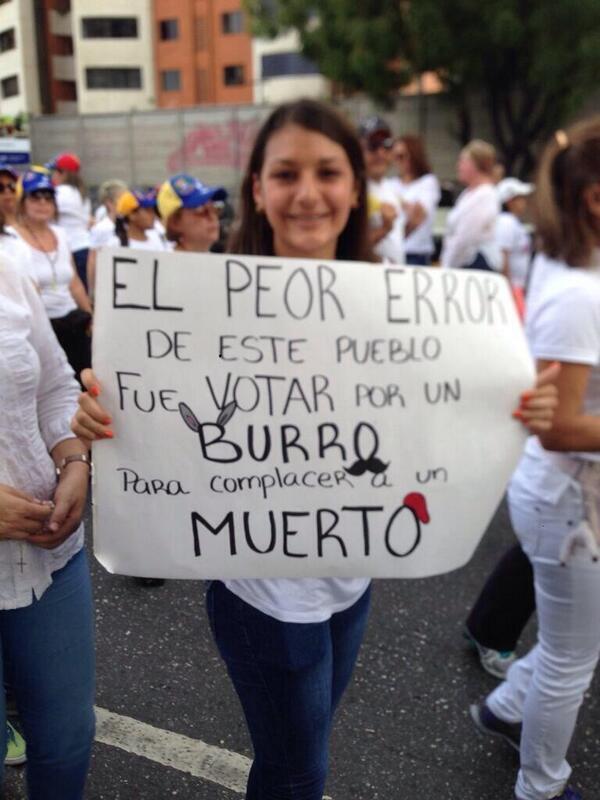 EL PEOR ERROR
DE ESTE PUEBLO
FUE VOTAR POR UN
BURRO
PARA COMPLACER A UN
MUERTO